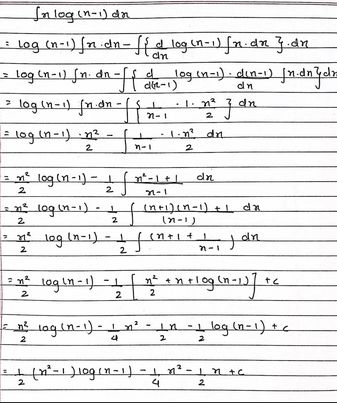 ∫n log(n-1) dn
= log(n-1)∫n·dn - ∫{d/dn log(n-1)∫n·dn}·dn
= log(n-1)∫n·dn - ∫{d/d(n-1) log(n-1)·d(n-1)/dn ∫n·dn}dn
= log(n-1)∫n·dn - ∫{1/(n-1) · 1 · n²/2} dn
= log(n-1)·n²/2 - ∫1/(n-1) · 1·n²/2 dn
= n²/2 log(n-1) - 1/2 ∫(n²-1+1)/(n-1) dn
= n²/2 log(n-1) - 1/2 ∫((n+1)(n-1)+1)/(n-1) dn
= n²/2 log(n-1) - 1/2 ∫(n+1+1/(n-1)) dn
= n²/2 log(n-1) - 1/2 [n²/2 + n + log(n-1)] + c
= n²/2 log(n-1) - 1/4 n² - 1/2 n - 1/2 log(n-1) + c
= 1/2 (n²-1)log(n-1) - 1/4 n² - 1/2 n + c